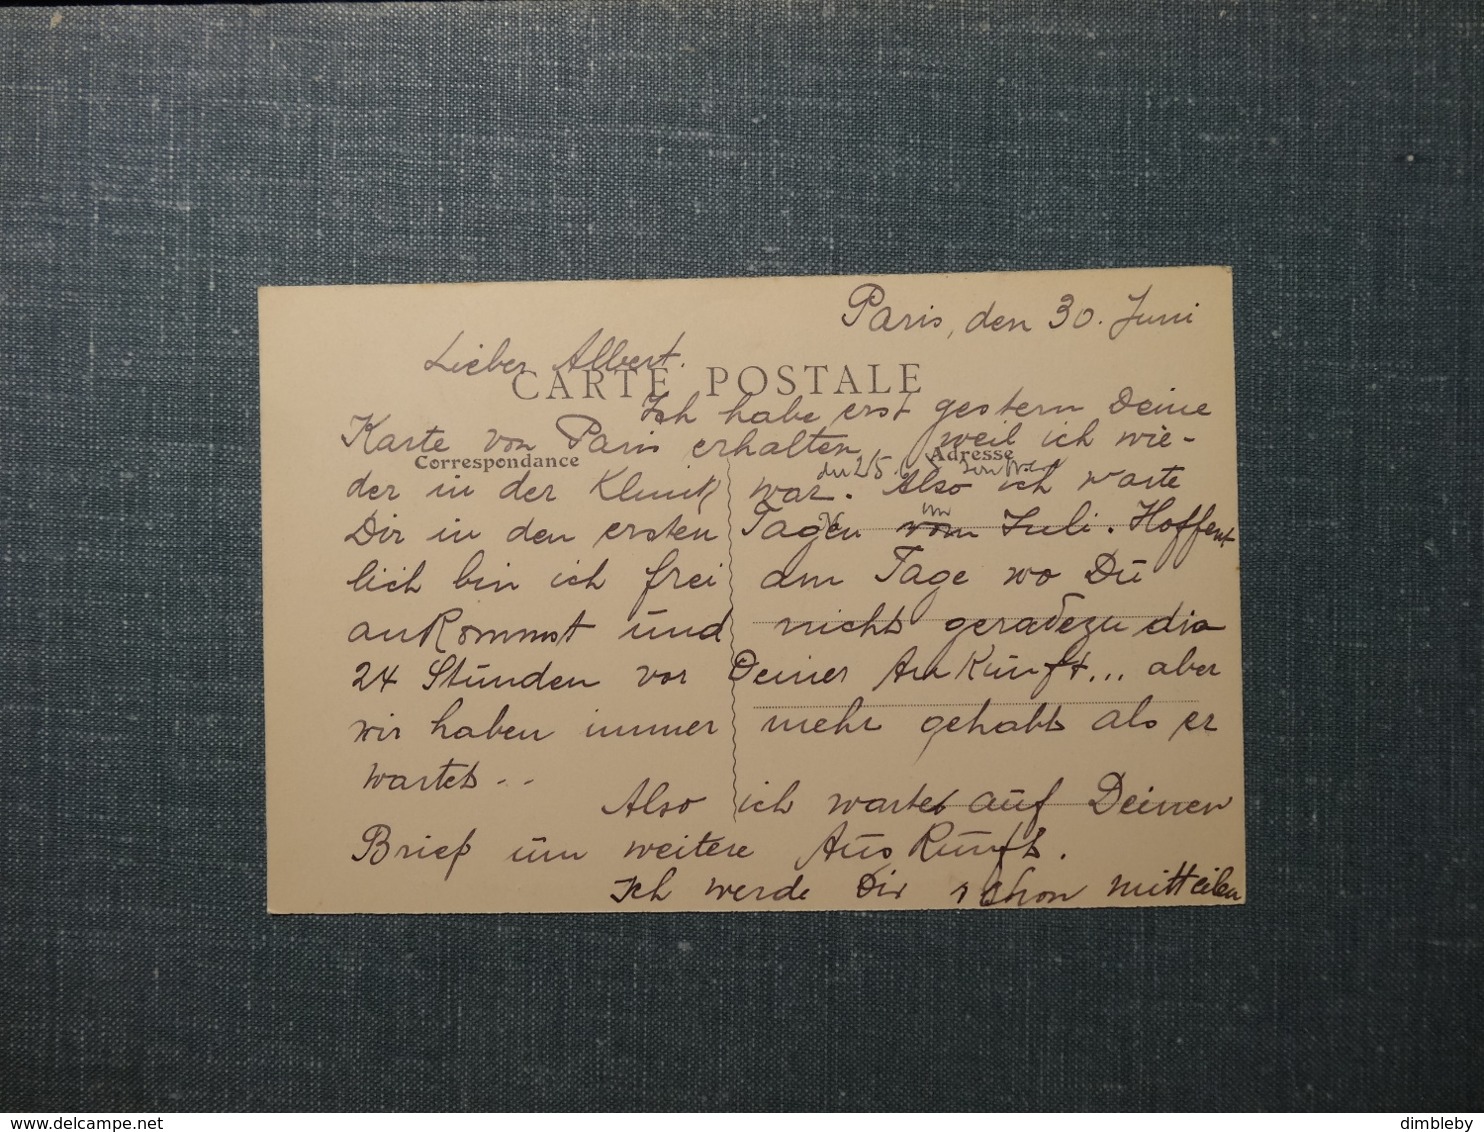 Paris, den 30. Juni
Lieber Albert.
CARTE POSTALE
Ich habe erst gestern Deine
Karte von Paris erhalten, weil ich wie-
Correspondance
Adresse
der in der Klinik war. Also ich warte
im
Dir in den ersten Tagen vom Juli. Hoffent
lich bin ich frei am Tage wo Du
ankommst und nicht geradezu die
24 Stunden vor Deiner Ankunft... aber
wir haben immer mehr gehabt als er
wartet..
Also ich warte auf Deinen
Brief um weitere Auskunft.
Ich werde Dir schon mitteilen
delcampe.net
dimbleby